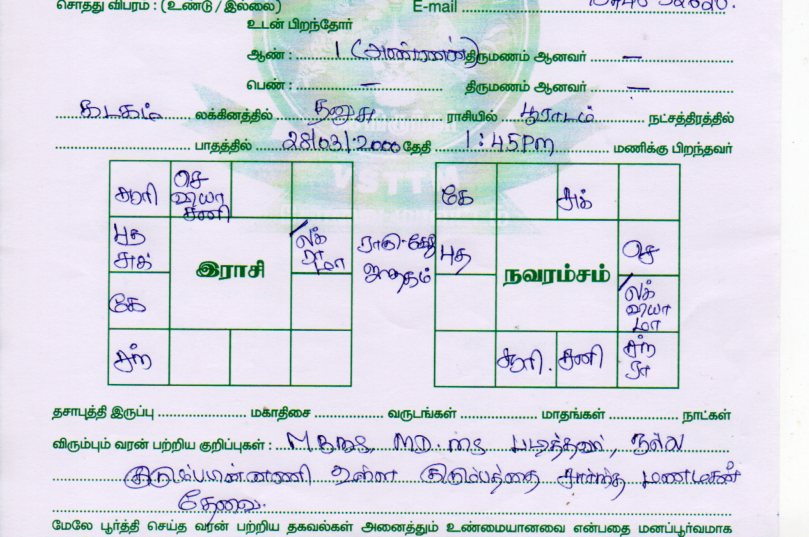 சொத்து விபரம் : (உண்டு / இல்லை) E-mail
உடன் பிறந்தோர்
ஆண் : 1 (அண்ணன்) திருமணம் ஆனவர் —
பெண் : — திருமணம் ஆனவர் —
கடகம் லக்கினத்தில் தனுசு ராசியில் பூராடம் நட்சத்திரத்தில்
பாதத்தில் 28/03/2000 தேதி 1:45PM மணிக்கு பிறந்தவர்
சூரி செ வியா சனி
புத சுக் லக் ரா மா
இராசி
கே
சந்
ராகு-கேது ஜாதகம்
கே சுக்
புத செ
நவாம்சம்
லக் வியா மா
சூரி. சனி சந் ரா
தசாபுத்தி இருப்பு மகாதிசை வருடங்கள் மாதங்கள் நாட்கள்
விரும்பும் வரன் பற்றிய குறிப்புகள் : M.B.B.S, MD. MS படித்தவர், நல்ல
குடும்பபின்னணி உள்ள குடும்பத்தை சார்ந்த மணமகன்
தேவை.
மேலே பூர்த்தி செய்த வரன் பற்றிய தகவல்கள் அனைத்தும் உண்மையானவை என்பதை மனப்பூர்வமாக